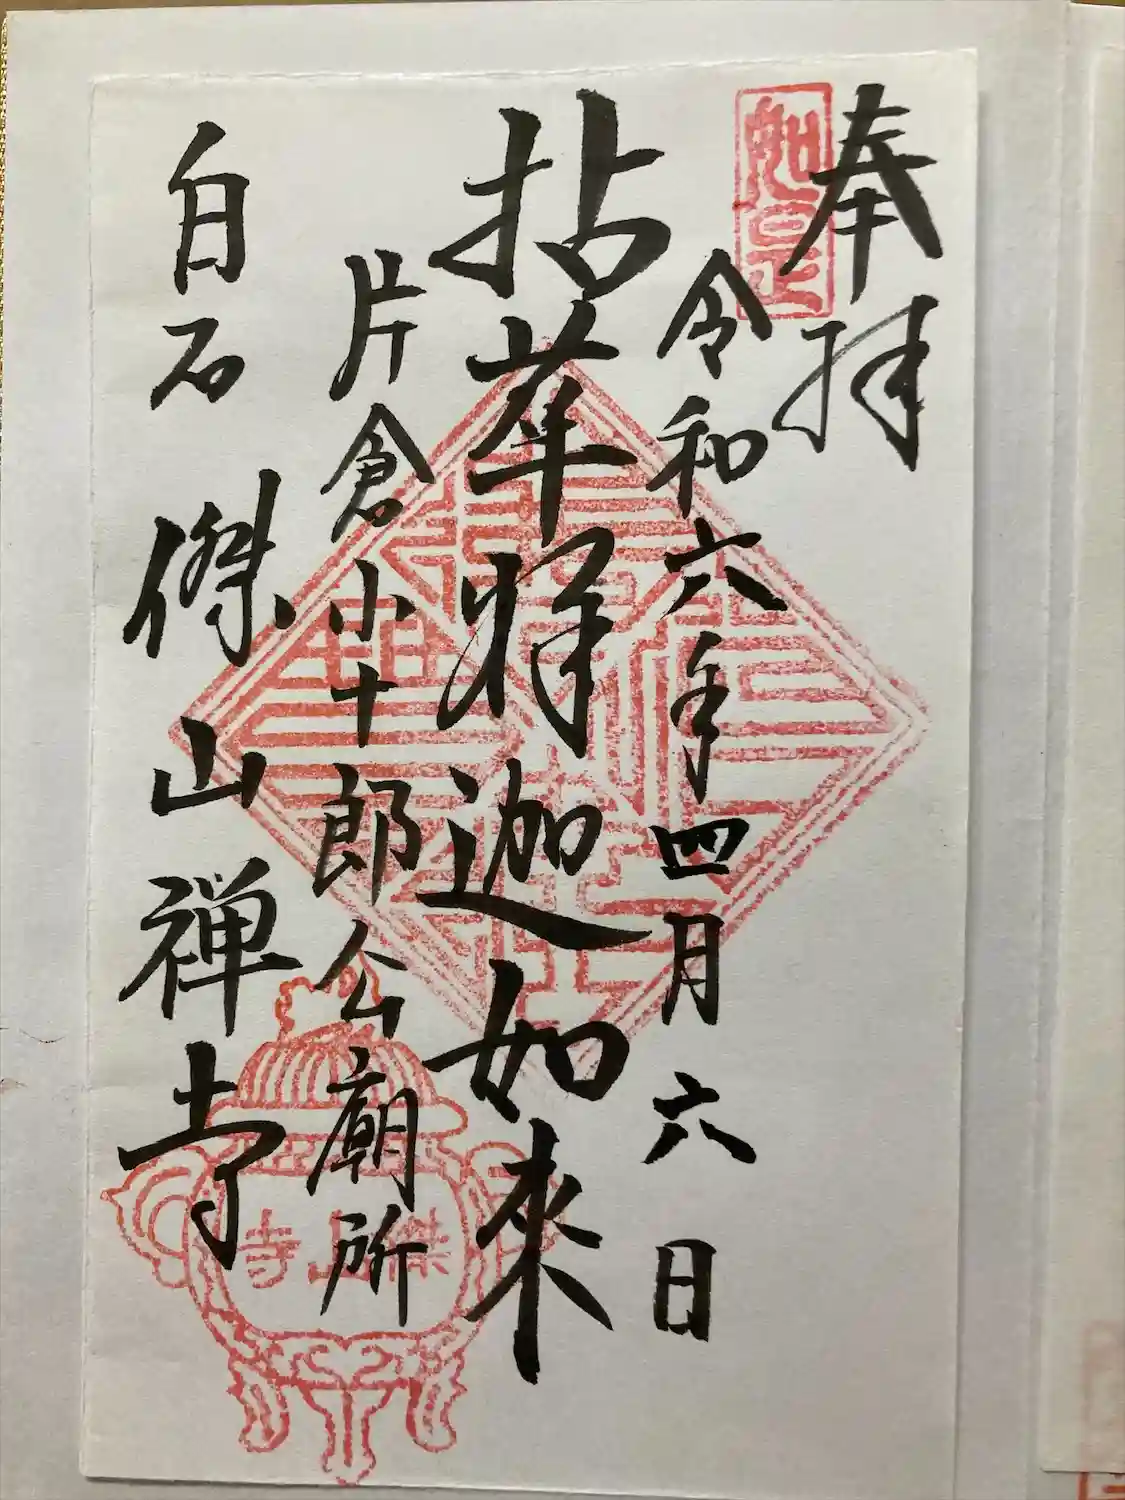 奉拝
令和六年四月六日
拈華釋迦如來
片倉小十郎公廟所
白石 傑山禅寺
傑山寺